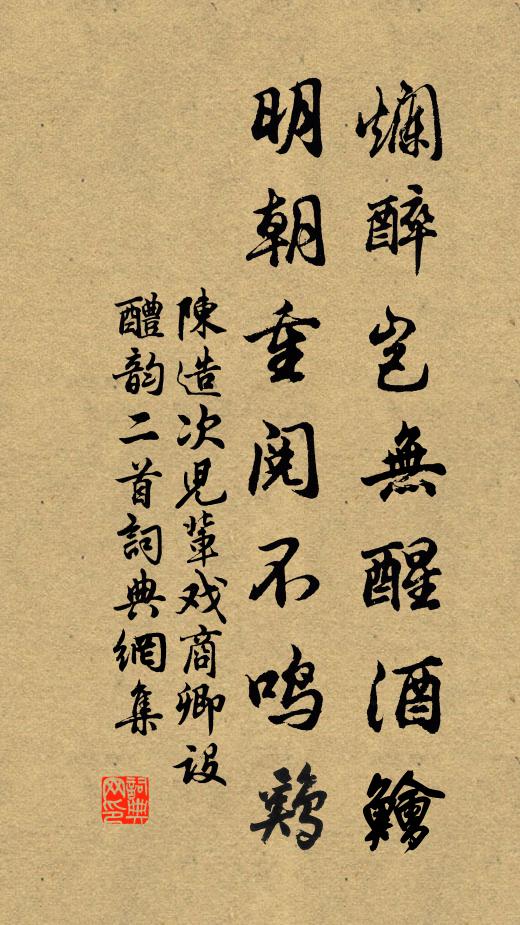 爛醉豈無醒酒鱠
明朝重閱不鳴鷄
陳造次児輩戏商卿設
醴韵二首詞典網集
詞典网印